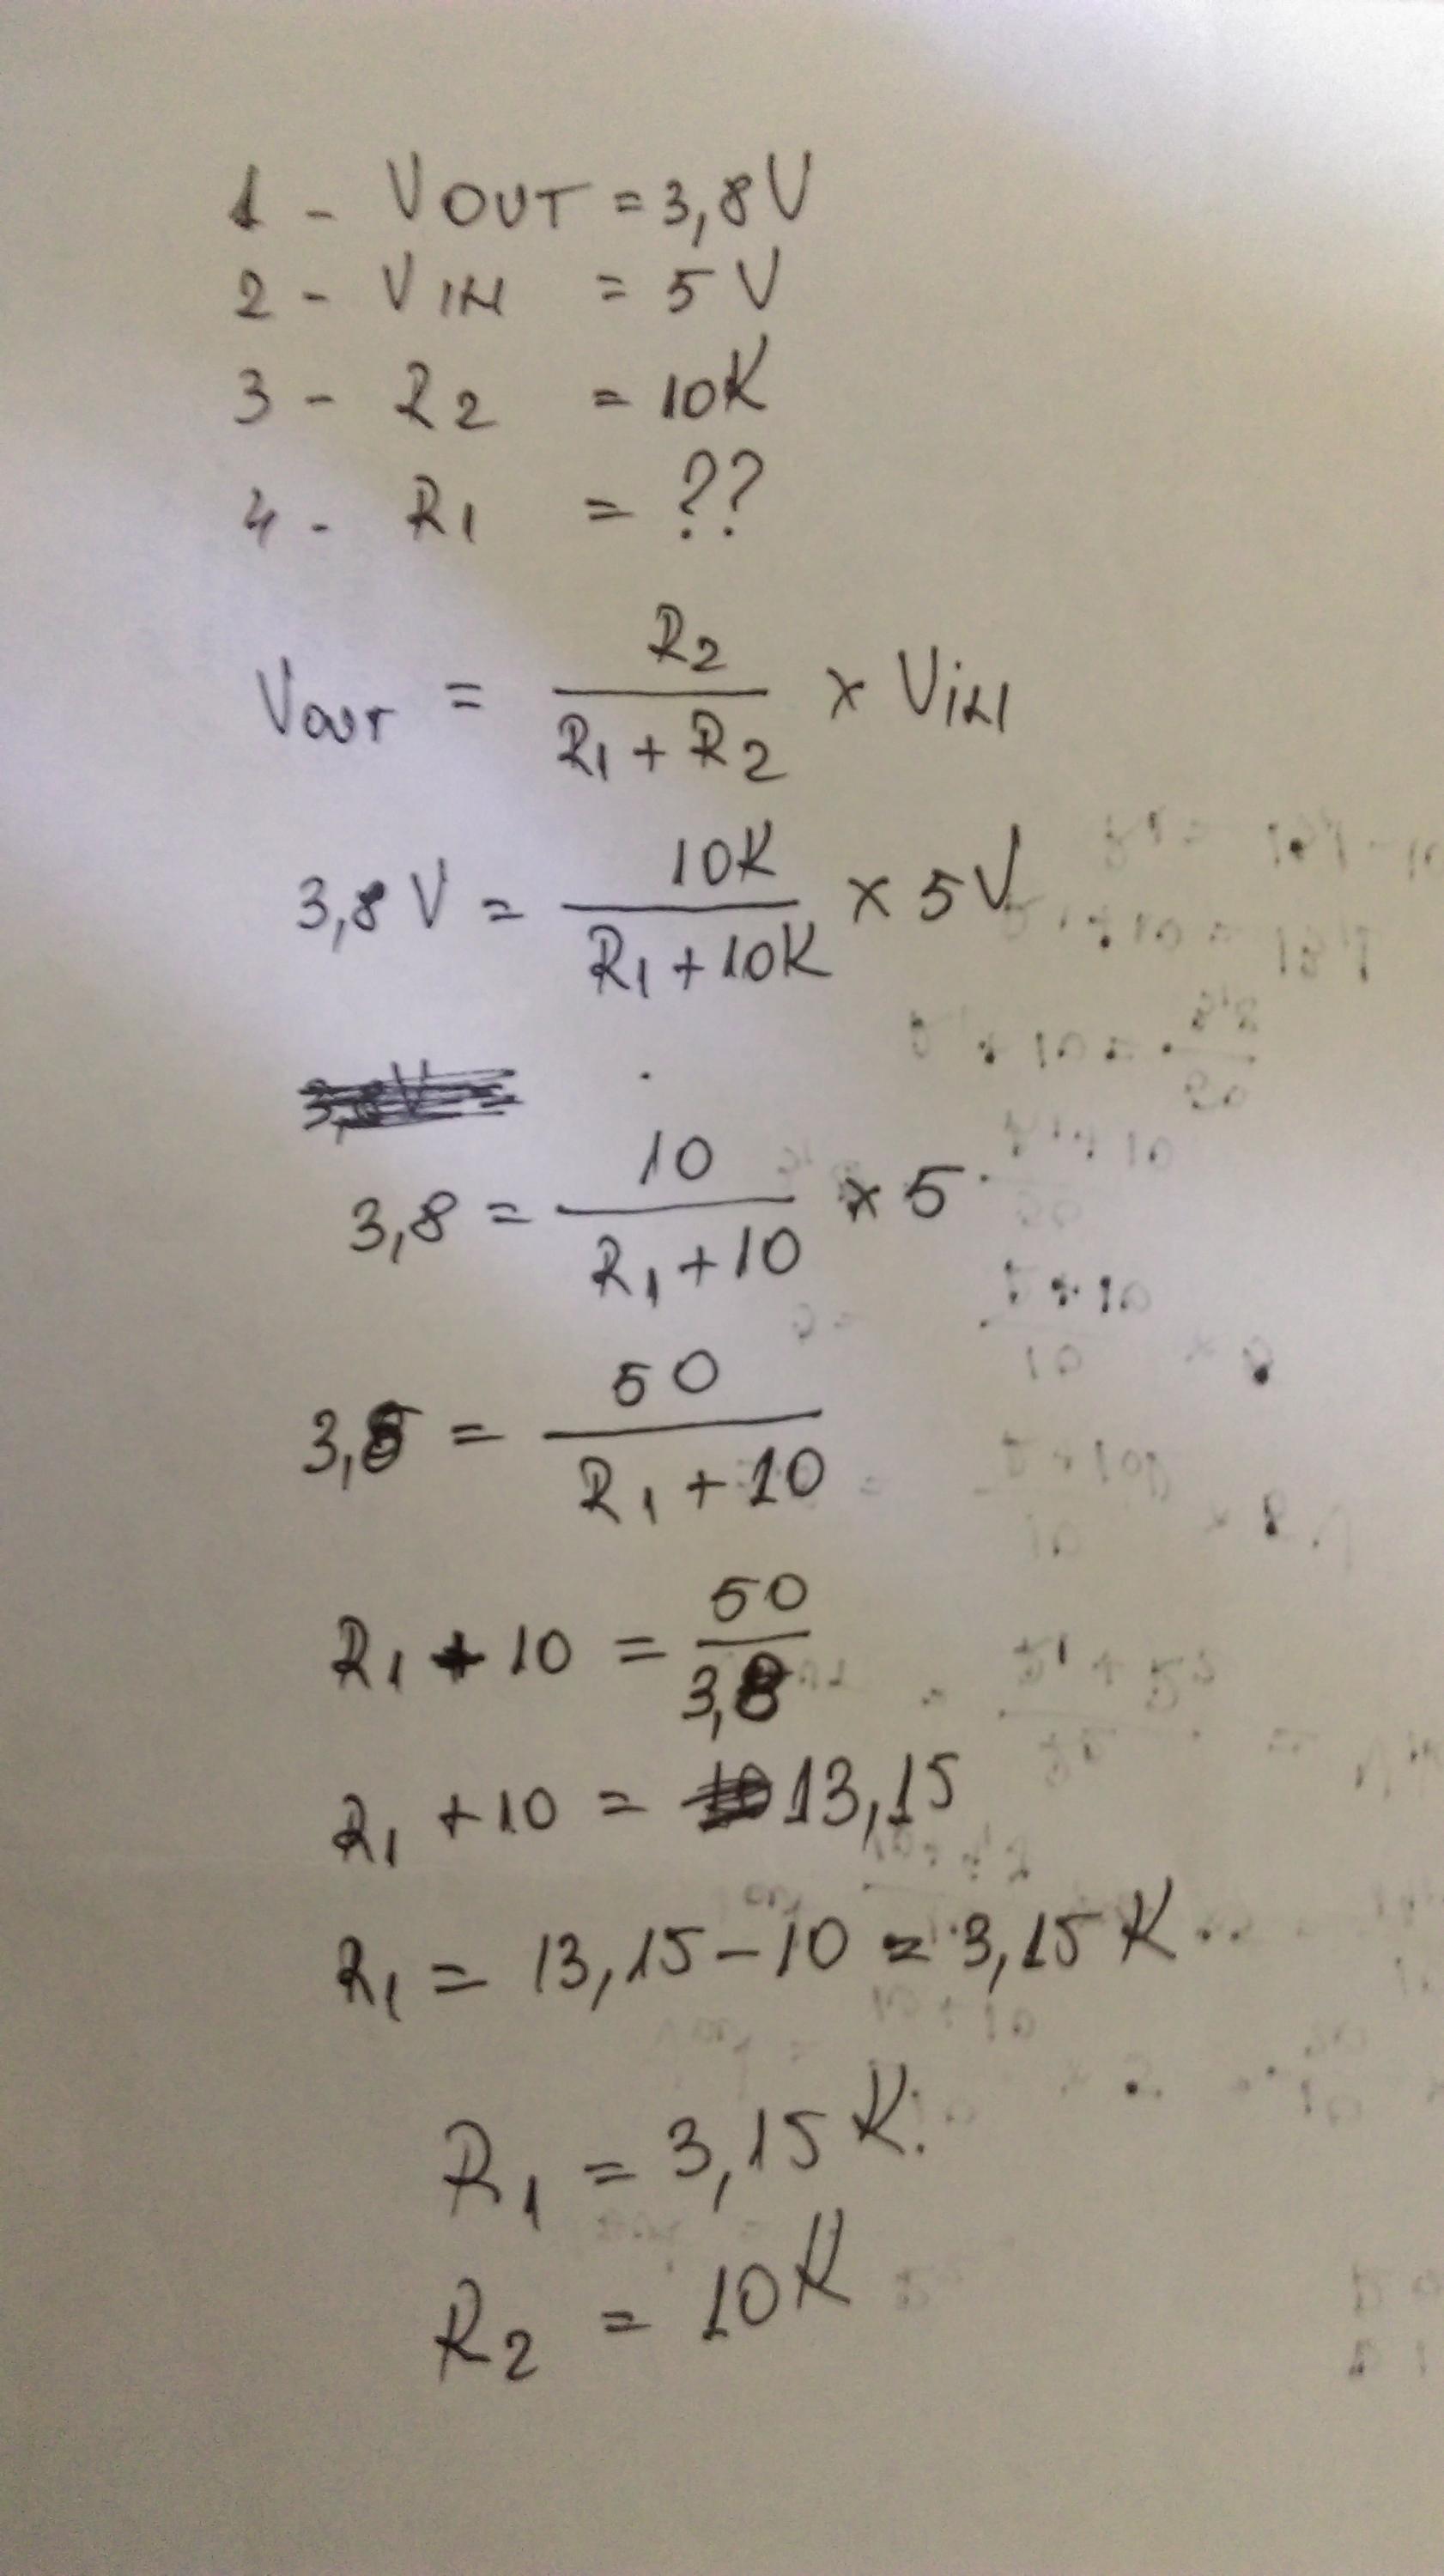 1 - VOUT = 3,8V
2 - VIN = 5V
3 - R2 = 10K
4 - R1 = ??
VOUT = R2 / (R1 + R2) x VIN
3,8V = 10K / (R1 + 10K) x 5V
3,8 = 10 / (R1 + 10) x 5
3,8 = 50 / (R1 + 10)
R1 + 10 = 50 / 3,8
R1 + 10 = 13,15
R1 = 13,15 - 10 = 3,15K
R1 = 3,15K.
R2 = 10K